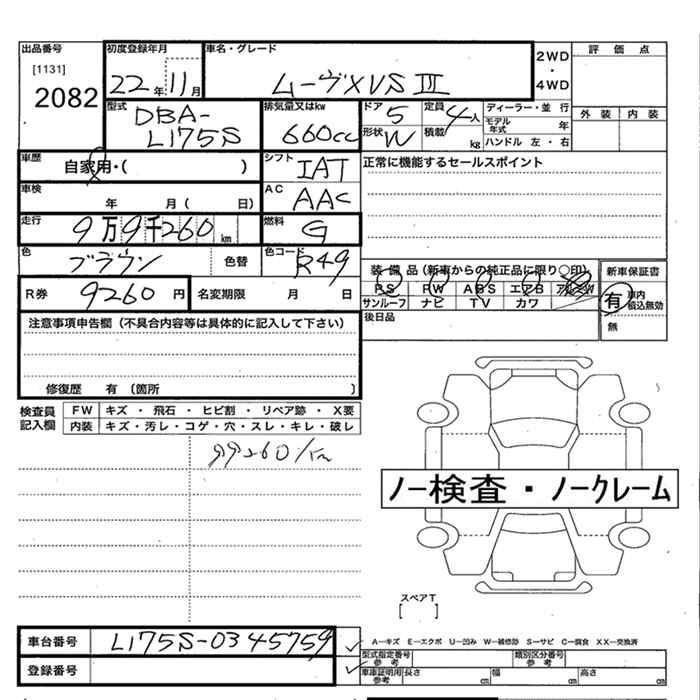 出品番号 初度登録年月 車名・グレード 2WD・4WD 評価点
[1131] 2082 22年11月 ムーヴXVS III 外装 内装
型式 DBA-L175S 排気量又はkw 660cc ドア 5 定員 4人 ディーラー・並行
形状 W 積載 kg モデル年式 年
ハンドル 左・右
車歴 自家用・( ) シフト IAT 正常に機能するセールスポイント
車検 年 月( 日) AC AAC
走行 9万9千260km 燃料 G
色 ブラウン 色替 色コード R49
装備品(新車からの純正品に限り○印) 新車保証書
PS PW ABS エアB アルミW 有 車内積込無効
サンルーフ ナビ TV カワ
R券 9260円 名変期限 月 日 後日品 無
注意事項申告欄(不具合内容等は具体的に記入して下さい)
修復歴 有(箇所 )
検査員記入欄 FW キズ・飛石・ヒビ割・リペア跡・X要
内装 キズ・汚レ・コゲ・穴・スレ・キレ・破レ
99260km
ノー検査・ノークレーム
スペアT
[ ]
車台番号 L175S-0345759 A-キズ E-エクボ U-凹み W-補修跡 S-サビ C-腐食 XX-交換済
型式指定番号参考 類別区分番号参考
登録番号 車庫証明用参考 長さ cm 幅 cm 高さ cm